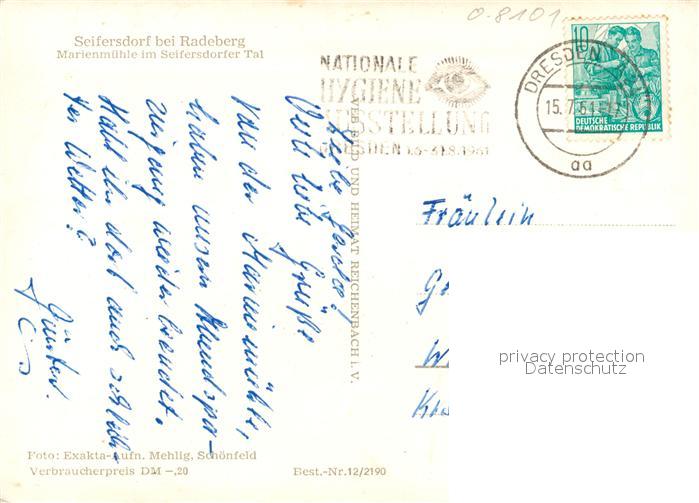 o-8101
Seifersdorf bei Radeberg
Marienmühle im Seifersdorfer Tal
NATIONALE
HYGIENE
AUSSTELLUNG
DRESDEN 1.6-31.8.1961
DRESDEN
15.7.61
aa
10
DEUTSCHE
DEMOKRATISCHE REPUBLIK
VEB BILD UND HEIMAT REICHENBACH i. V.
Liebe
Viele liebe Grüße
Von der Marienmühle,
haben unsern Abendspa-
ziergang wieder beendet.
Habt ihr dort auch schlech-
tes Wetter?
Günter
Fräulein
privacy protection
Datenschutz
Foto: Exakta-Aufn. Mehlig, Schönfeld
Verbraucherpreis DM –,20
Best.-Nr.12/2190